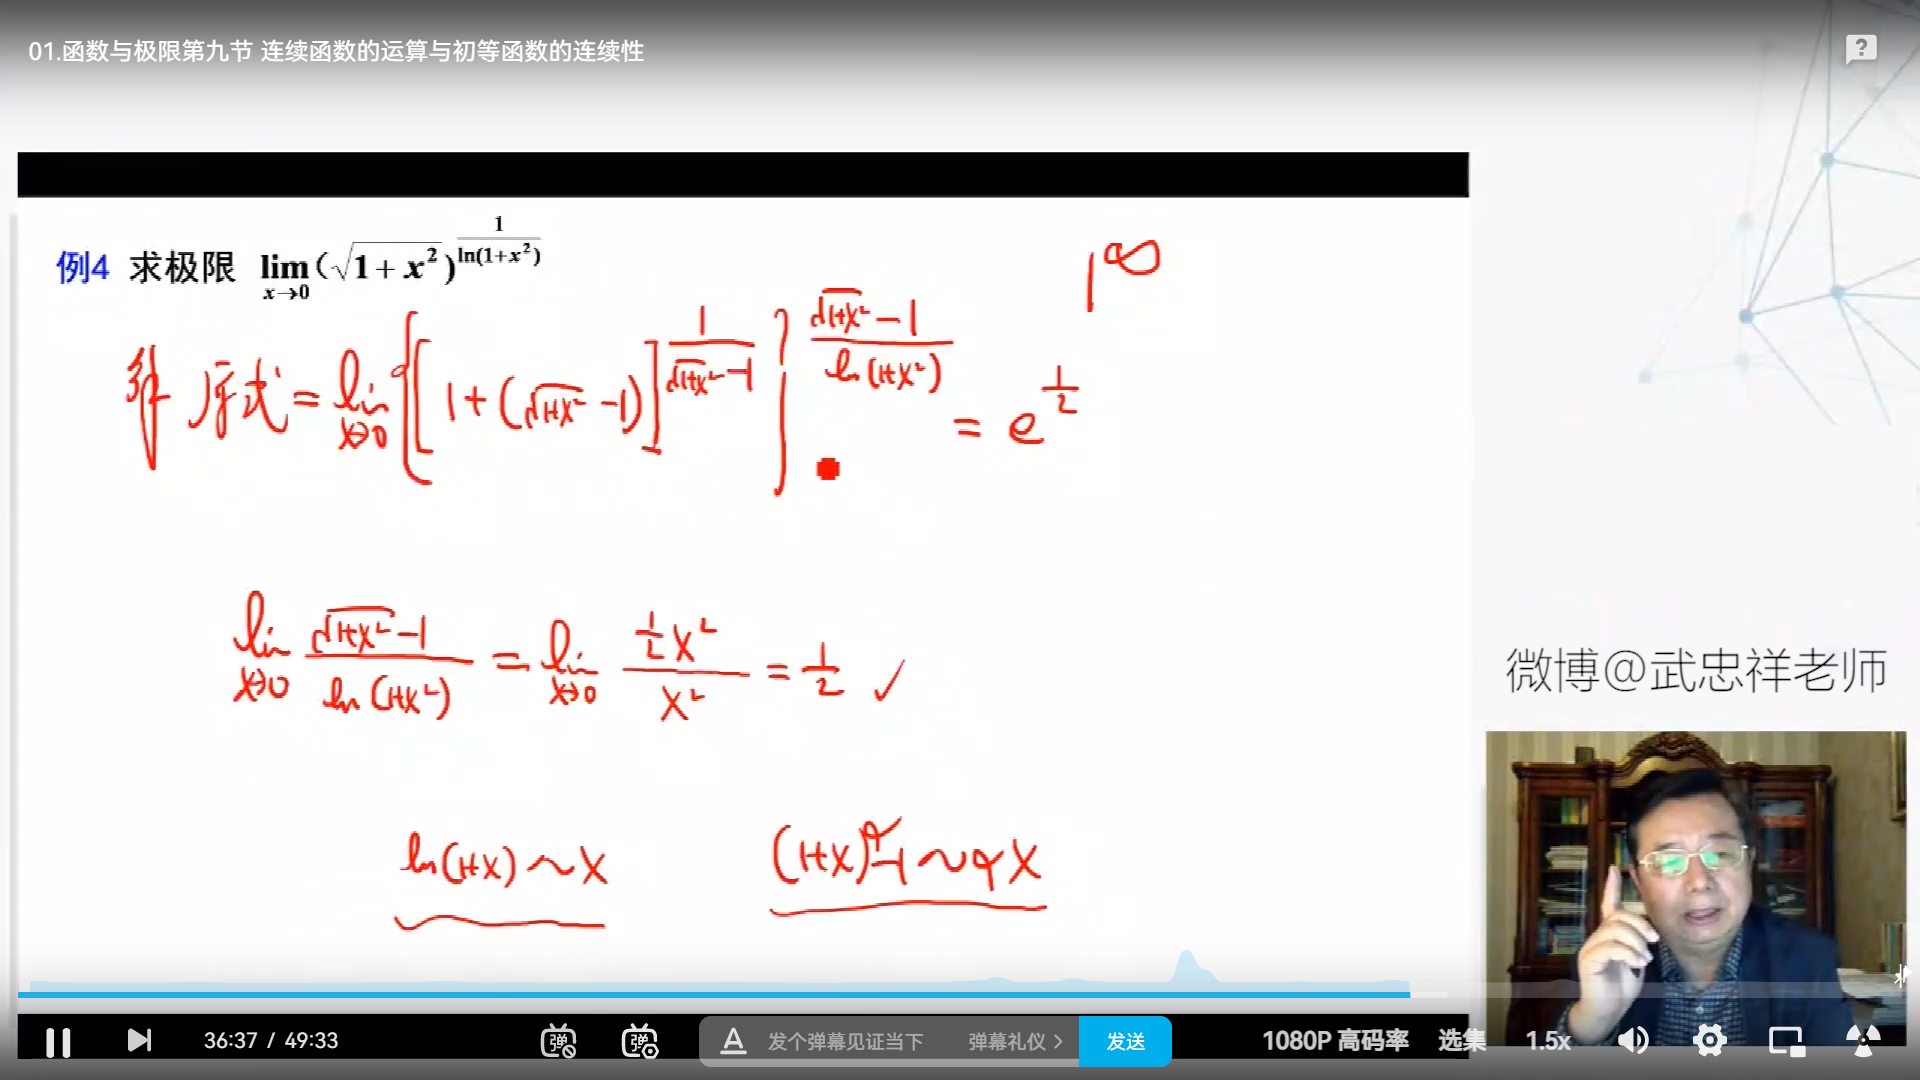 01.函数与极限第九节 连续函数的运算与初等函数的连续性
例4 求极限 lim_{x→0} (√(1+x²))^{1/ln(1+x²)}
1^∞
解 原式 = lim_{x→0} {[1+(√(1+x²) -1)]^{1/(√(1+x²)-1)}}^{(√(1+x²)-1)/ln(1+x²)} = e^{1/2}
lim_{x→0} (√(1+x²)-1)/ln(1+x²) = lim_{x→0} (½x²)/x² = 1/2 ✓
ln(1+x) ~ x (1+x)^α-1 ~ αx
微博@武忠祥老师
36:37 / 49:33 弹 弹 A 发个弹幕见证当下 弹幕礼仪 > 发送 1080P 高码率 选集 1.5x